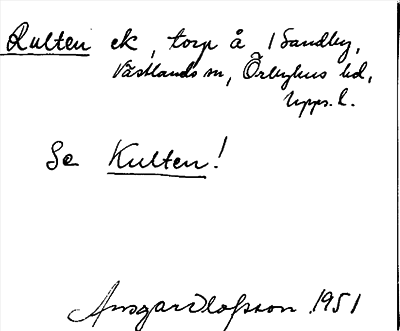 Rulten ek, torp å 1 Sandby,
Västlands sn, Örbyhus hd,
Upps. l.
Se Kulten!
Ansgar Olofsson 1951